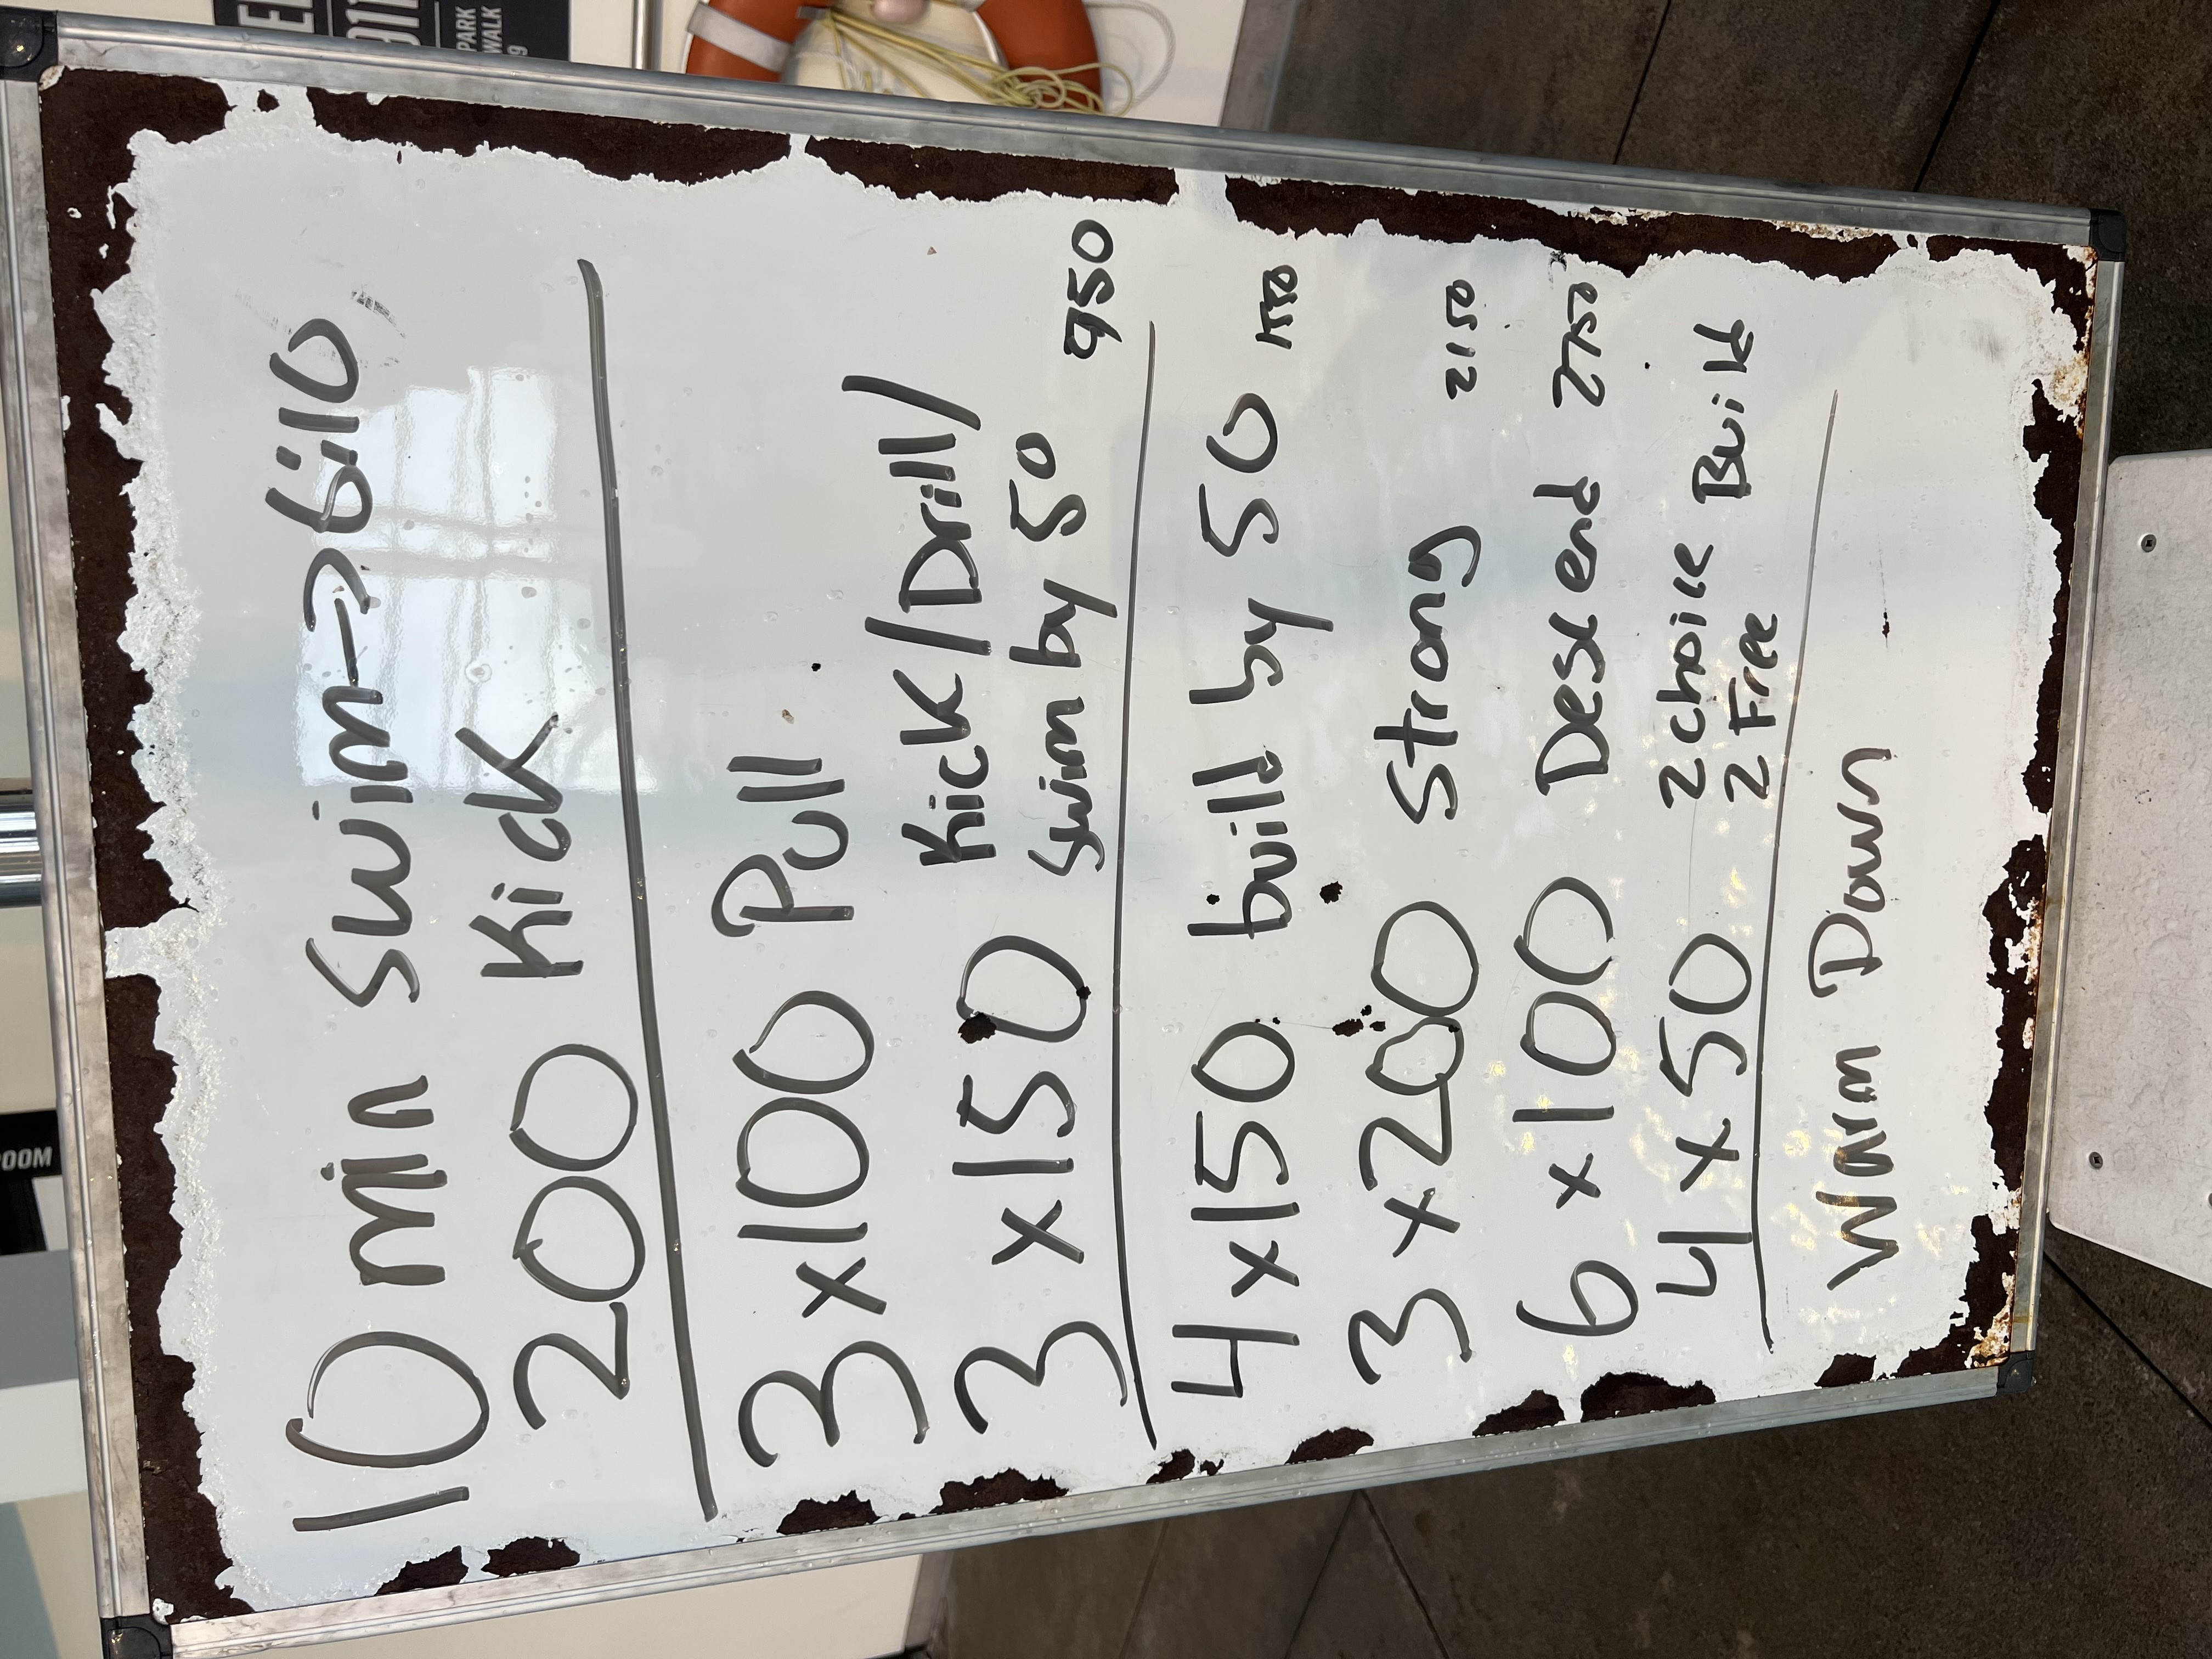 10 min Swim → 6:10
200 Kick
3x100 Pull
3x150 Kick/Drill/
Swim by 50
950
4x150 build by 50 1550
3x200 Strong 2150
6x100 Descend 2750
4x50 2 choice Build
2 Free
Warm Down
PARK
WALK